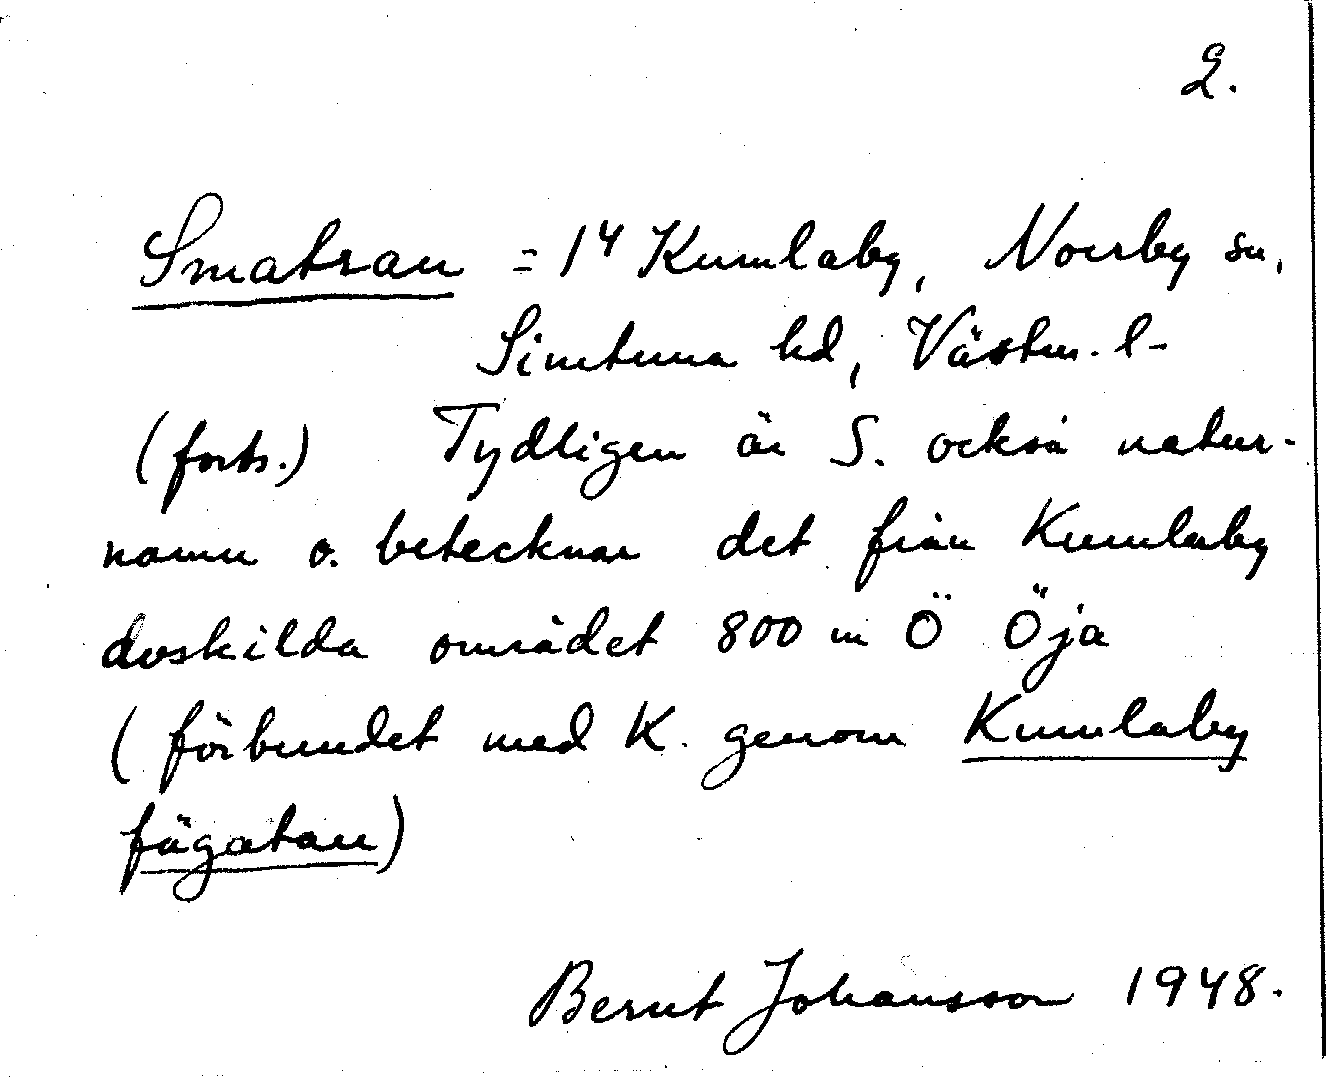 2.
Smatran = 1⁴ Kumlaby, Norrby sn,
Simtuna hd, Västm. l-
(forts.) Tydligen är S. också natur-
namn o. betecknar det från Kumlaby
avskilda området 800 m Ö Öja
(förbundet med K. genom Kumlaby
fägatan)
Bernt Johansson 1948.